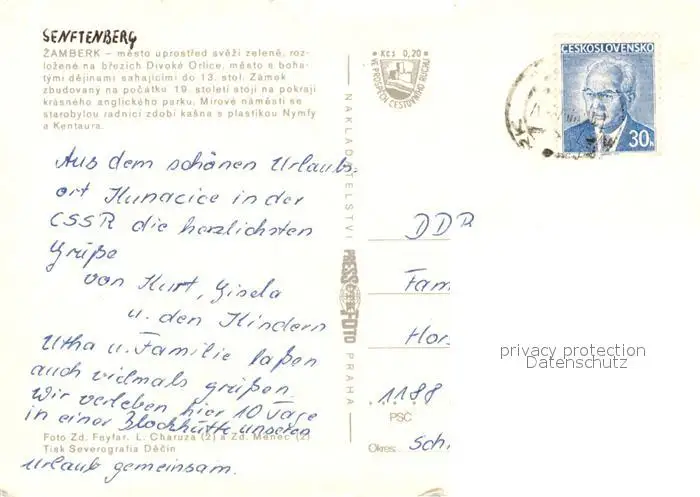 SENFTENBERG
ŽAMBERK – město uprostřed svěží zeleně, roz-
ložené na březích Divoké Orlice, město s boha-
tými dějinami sahajícími do 13. stol. Zámek
zbudovaný na počátku 19. století stojí na pokraji
krásného anglického parku. Mírové náměstí se
starobylou radnicí zdobí kašna s plastikou Nymfy
a Kentaura.
Aus dem schönen Urlaubs-
ort Kunacice in der
CSSR die herzlichsten
Grüße
von Kurt, Gisela
u. den Kindern
Utha u. Familie laßen
auch vielmals grüßen.
Wir verleben hier 10 Tage
in einer Blockhütte unseren
Foto Zd. Feyfar, L. Charuza (2) a Zd. Menec (2)
Tisk Severografia Děčín
Urlaub gemeinsam.
NAKLADATELSTVÍ
PRESSFOTO
PRAHA
Kcs 0,20
VE PROSPĚCH CESTOVNÍHO RUCHU
ČESKOSLOVENSKO
30h
DDR
Fam
Hors
1188
PSČ
Okres: Sch
privacy protection
Datenschutz